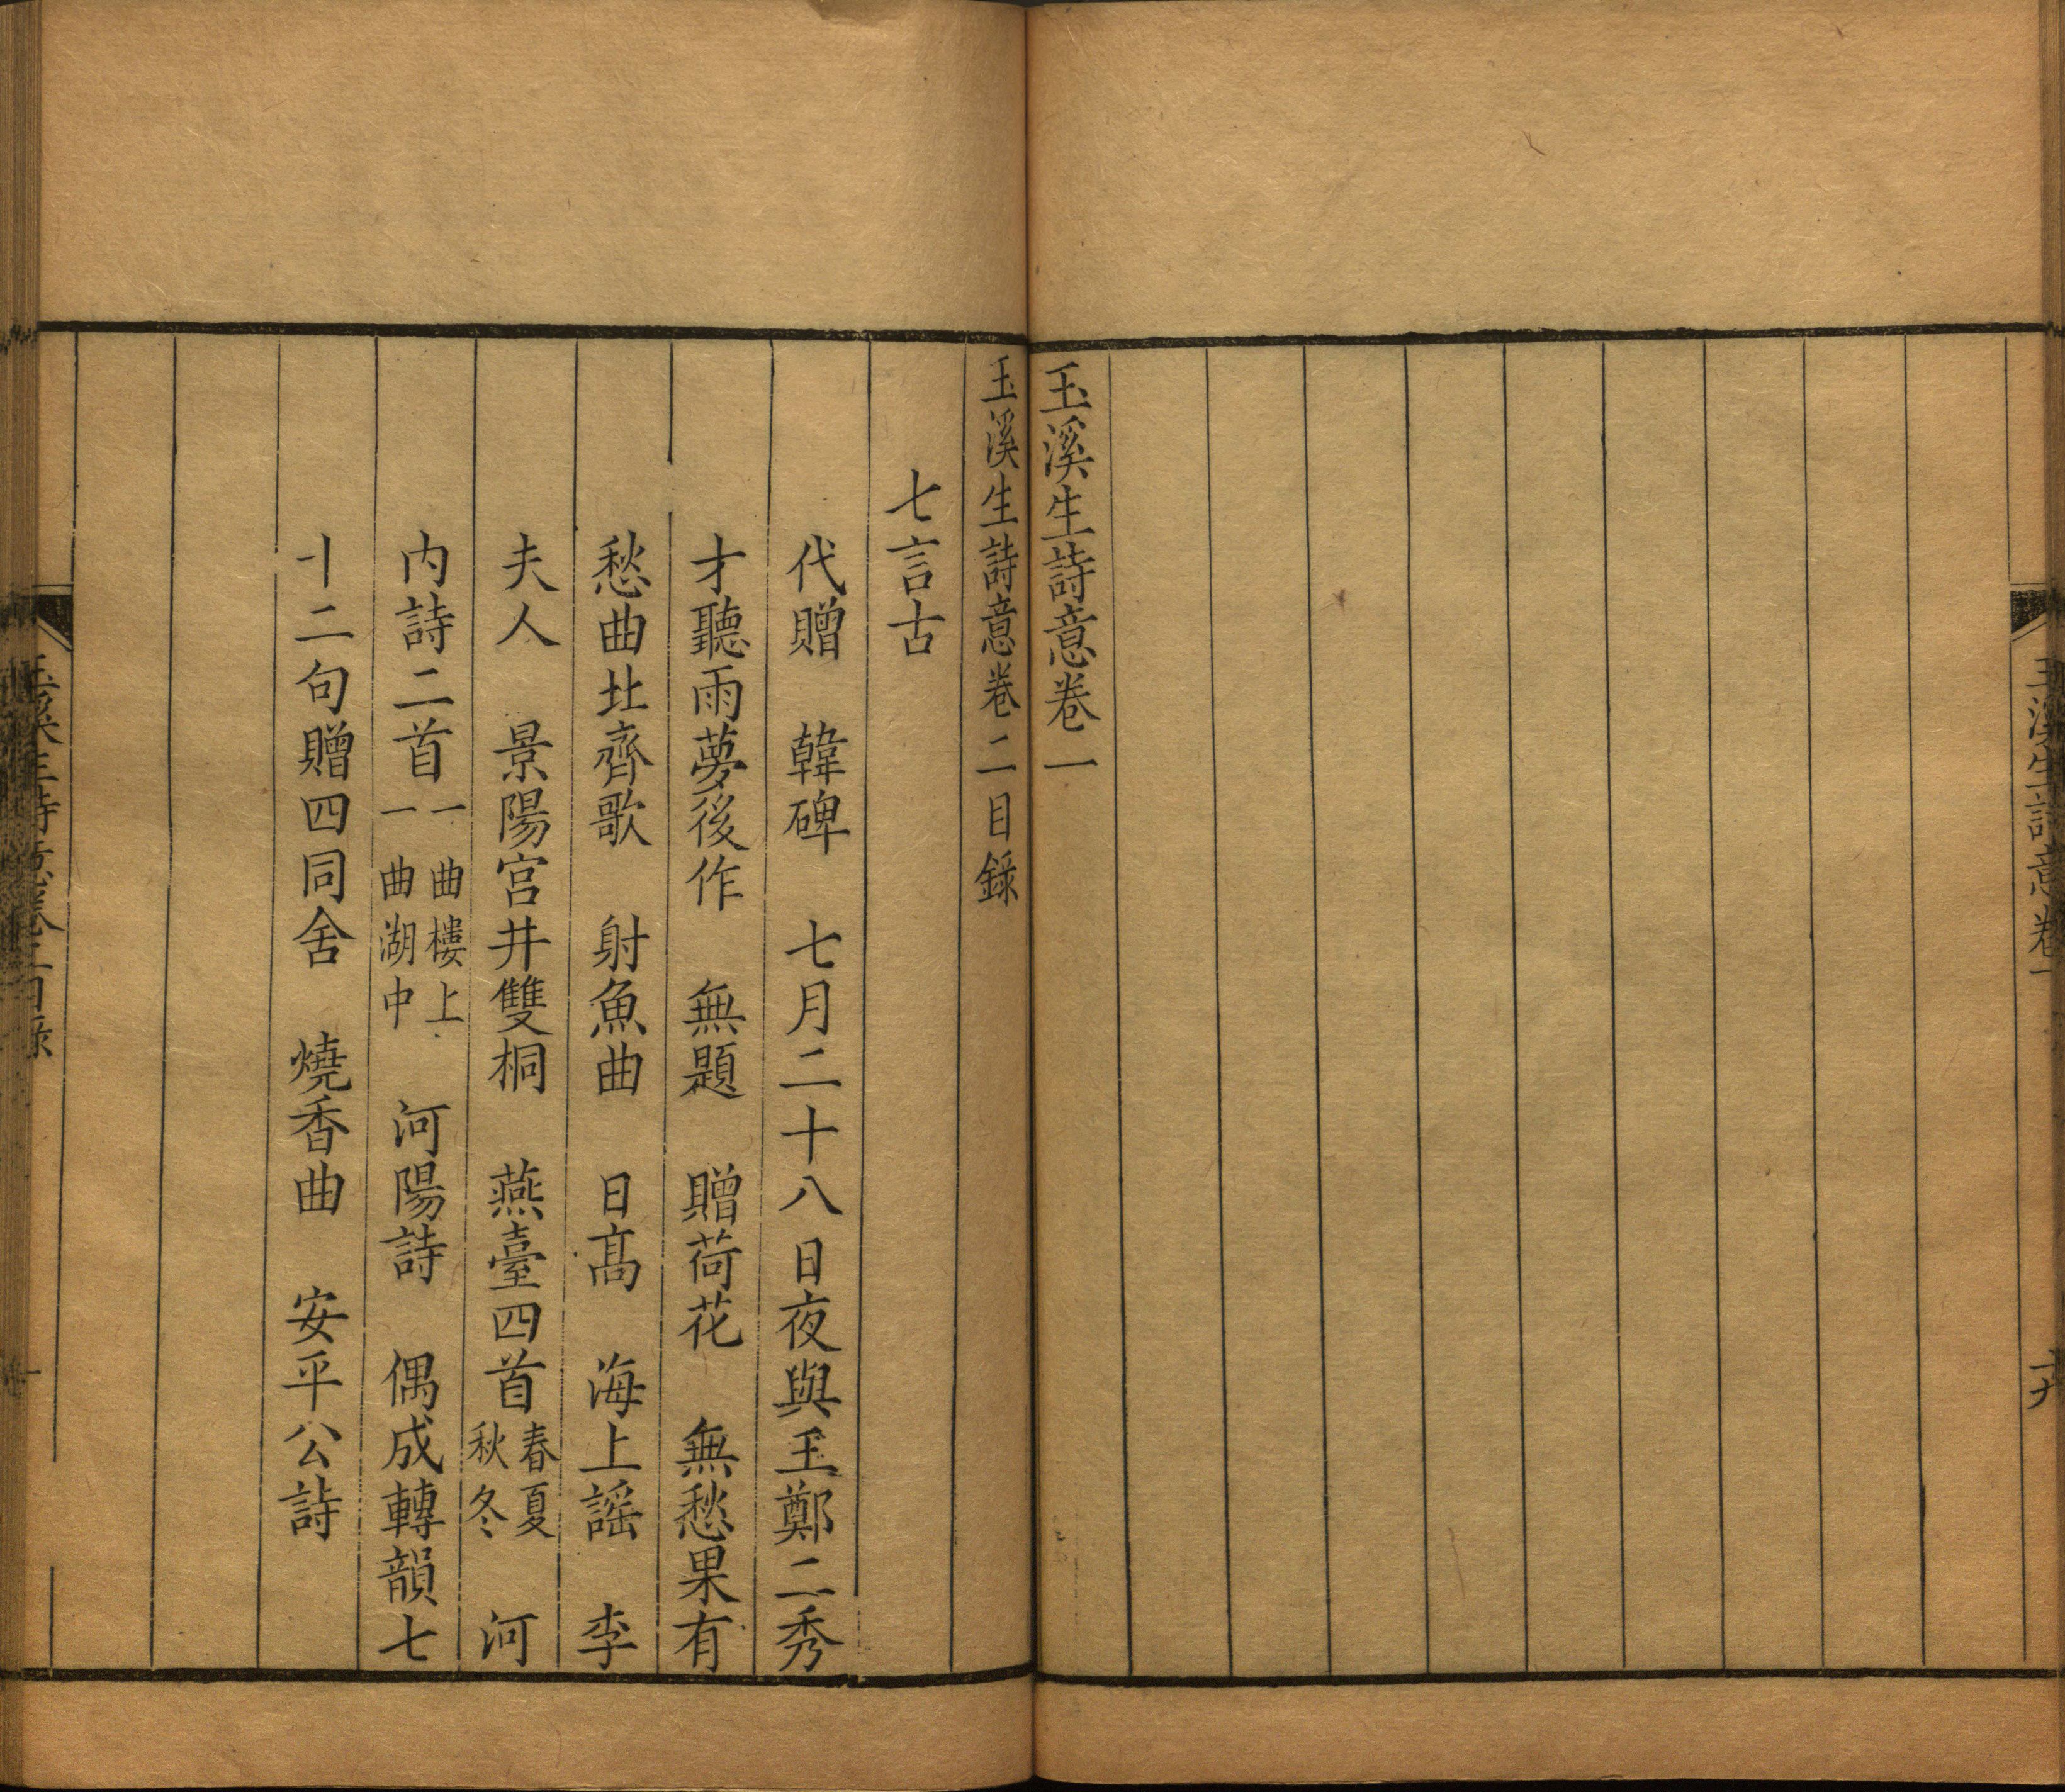 玉溪生詩意卷一
玉溪生詩意卷一
玉溪生詩意卷二目錄
七言古
代贈　韓碑　七月二十八日夜與王鄭二秀
才聽雨夢後作　無題　贈荷花　無愁果有
愁曲北齊歌　射魚曲　日髙　海上謠　李
夫人　景陽宮井雙桐　燕臺四首春夏秋冬　河
内詩二首一曲樓上一曲湖中　河陽詩　偶成轉韻七
十二句贈四同舍　燒香曲　安平公詩
玉溪生詩意卷二目錄